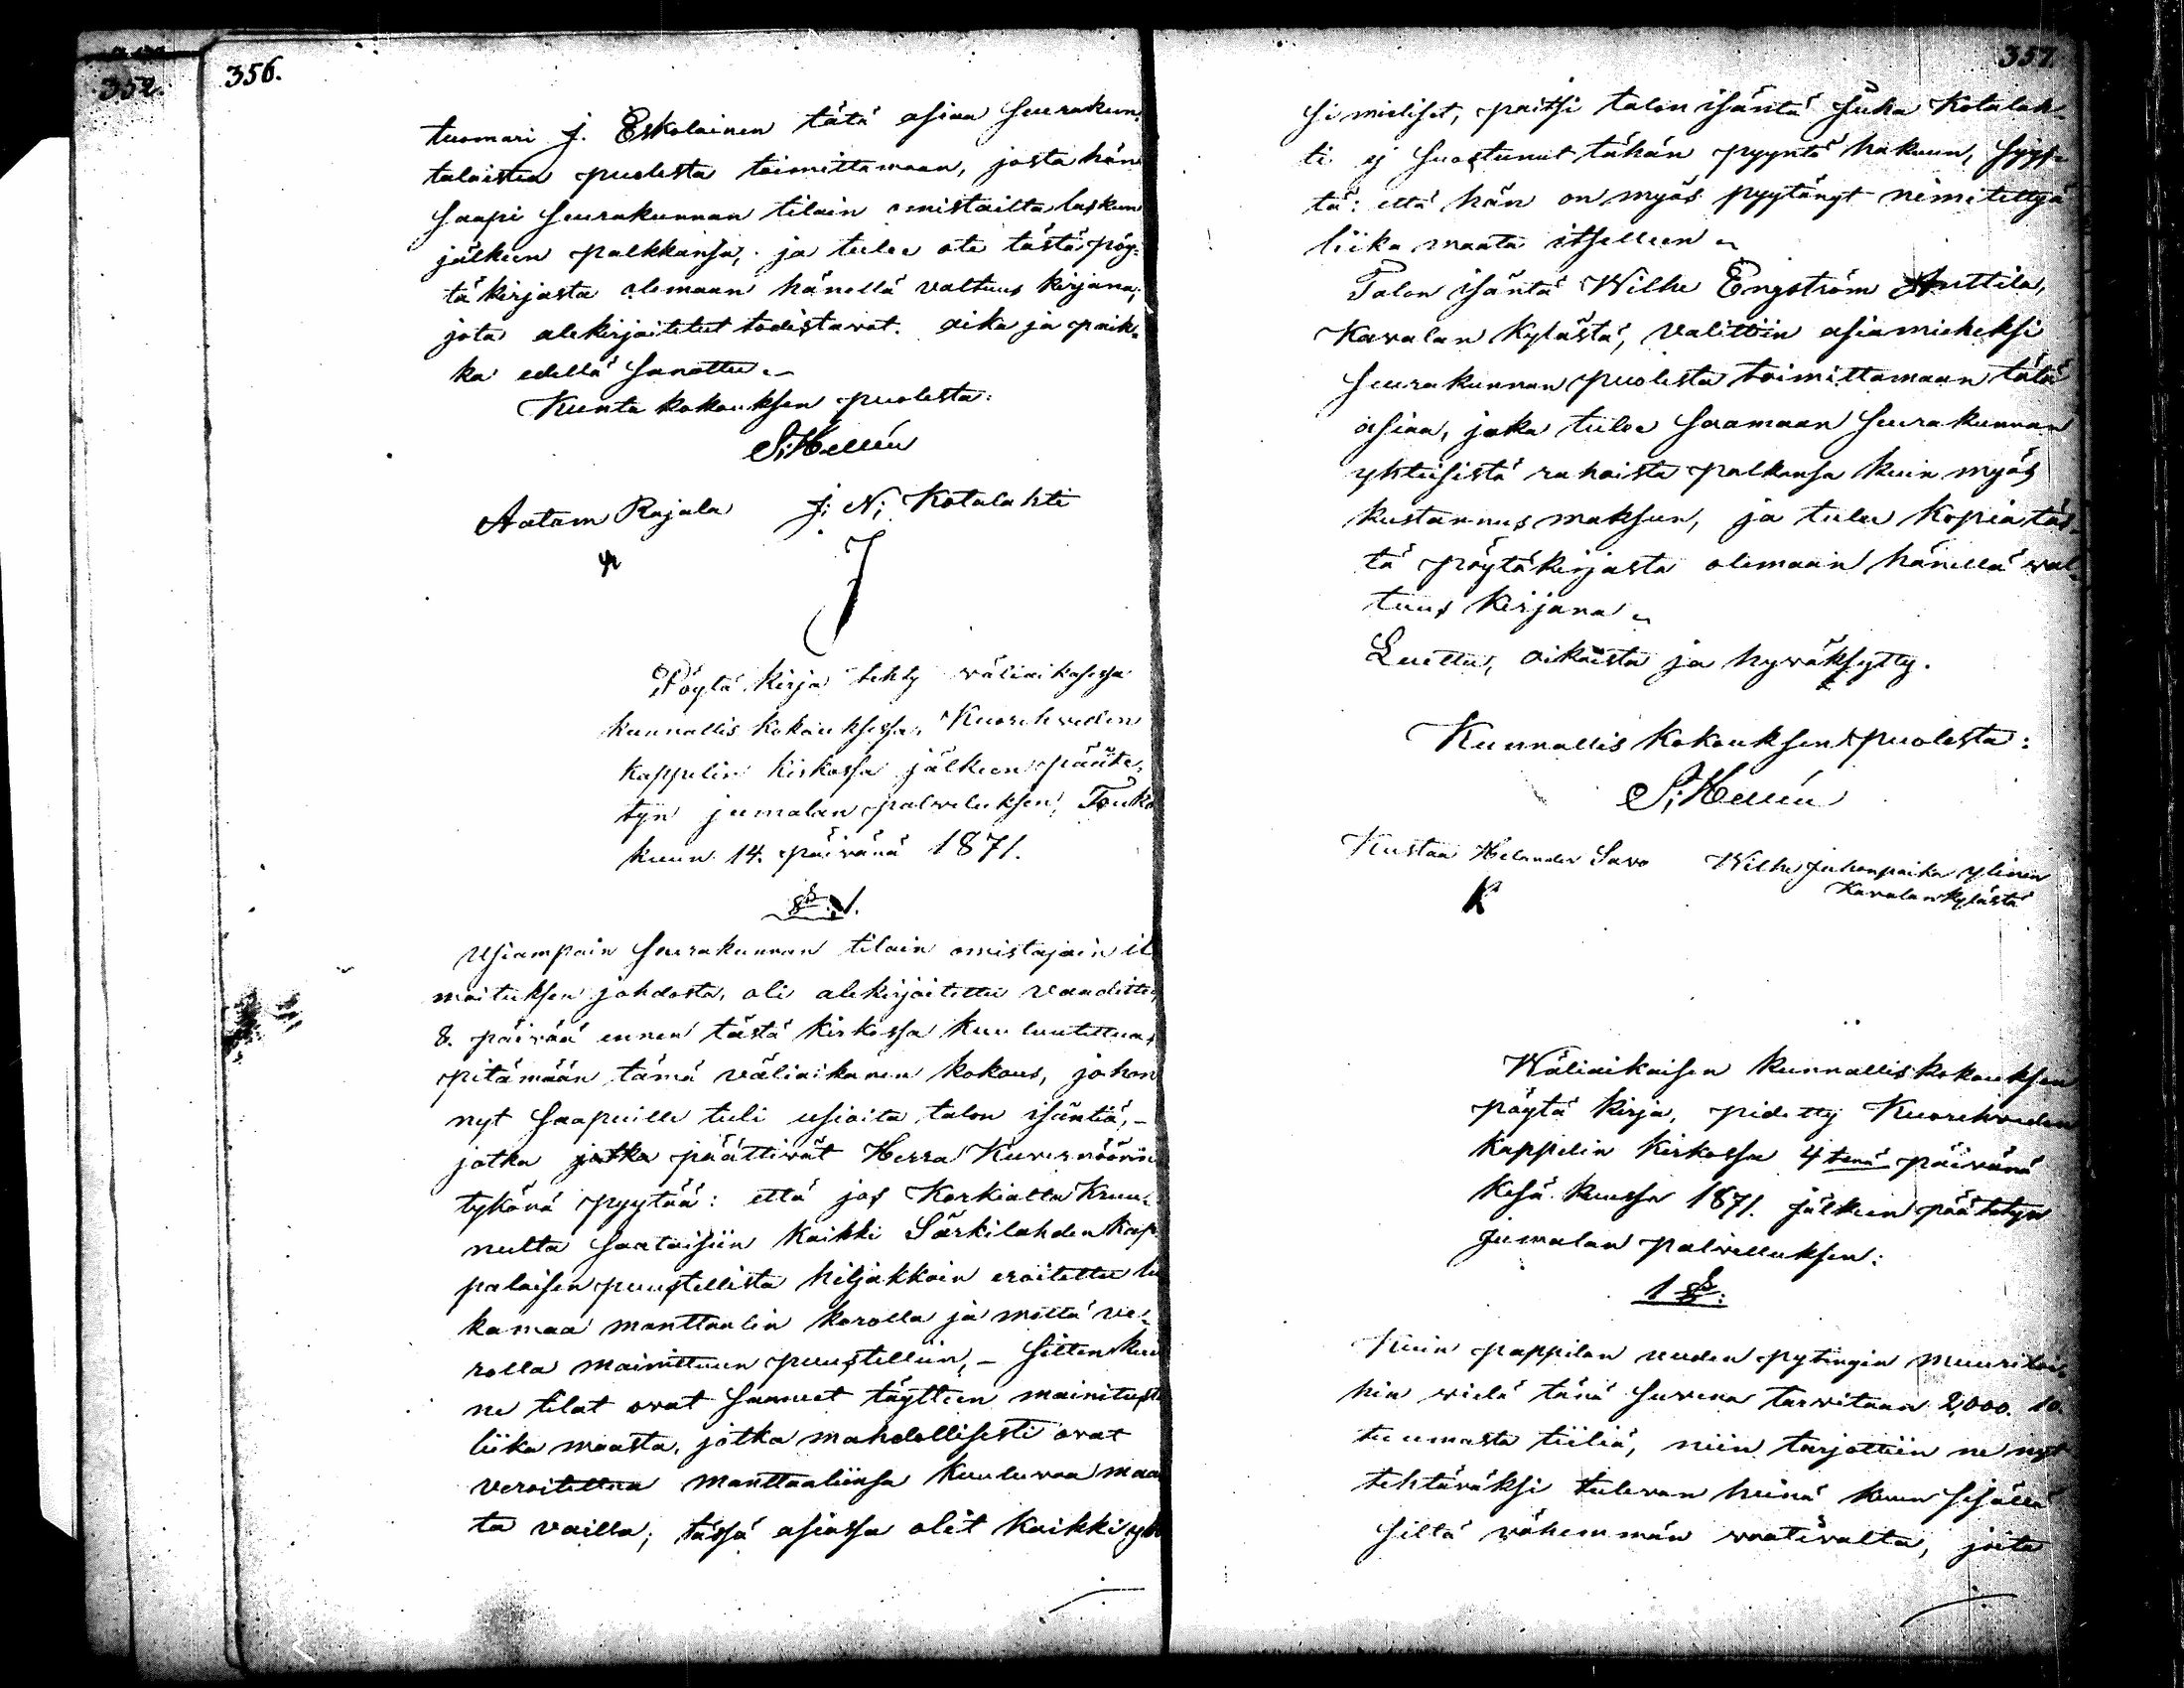 352.
356.
tuomari J. Eskolainen tätä asiaa seurakun-
talaisten puolesta toimittamaan, josta hän
saapi seurakunnan tilain omistailta laskun
jälkeen palkkansa, ja tulee ote tästä pöy-
täkirjasta olemaan hänellä valtuus kirjana,
jota alekirjoitetut todistavat. aika ja paik-
ka edellä sanottu.
Kunta kokouksen puolesta:
Aatam Rajala J: N: Kotalahti
Pöytä kirja tehty väliaikasessa
kunnallis kokouksessa, Kuoreheveden
kappelin kirkossa jälkeen pääte-
tyn jumalan palveluksen, Touko
kuun 14. päivänä 1871.
§ 1.
Usiampain seurakunnan tilain omistajain il
moituksen johdosta, oli alekirjoitettu vaadittu,
8. päivää ennen tästä kirkossa kuuluutettuna,
pitämään tämä väliaikanen kokous, johon
nyt saapuille tuli usioita talon isäntiä, -
jotka jotka päättivät Herra Kuvernöörin
tykönä pyytää: että jos Korkialta Kruu-
nulta saataisiin kaikki Särkilahden kap
palaisen puustellista hiljakkoin eroitettu lii
kamaa manttaalin korolla ja millä ve-
rolla mainittuun puustelliin, - sitten kuin
ne tilat ovat saaneet täytteen mainitusta
liika maasta, jotka mahdollisesti ovat
veroitettua manttaaliinsa kuuluvaa maa
ta vailla; tässä asiassa olit kaikki yk
357.
simieliset, paitsi talon isäntä Juha Kotalah-
ti ej suostunut tähän pyyntö hakuun, syys-
tä: että hän on myös pyytänyt nimitettyä
liika maata itselleen
Talon isäntä Wilhe Engström Anttila,
Kavalan kylästä, valittiin asiamieheksi
seurakunnan puolesta toimittamaan tätä
asiaa, joka tulee saamaan seurakunnan
yhteisistä rahoista palkansa kuin myös
kustannus maksun, ja tulee kopia täs-
tä pöytäkirjasta olemaan hänellä val-
tuus kirjana
Luettu, oikaistu ja hyväksytty.
Kunnallis kokouksen puolesta:
Kustaa Helander Savo Wilhe Juhanpoika Ylinen
K Kavalan kylästä
Wäliaikaisen kunnallis kokouksen
pöytä kirja, pidetty Kuoreheveden
kappelin kirkossa 4 tenä päivänä
kesä kuussa 1871. jälkeen päätetyn
jumalan palvelluksen:
1 §:
Kuin pappilan uuden pytingin muuriloi-
hin vielä tänä suvena tarvitaan 2,000. 10.
tuumasta tiiliä, niin tarjottiin ne nyt
tehtäväksi tulevan heinä kuun sisällä
siltä vähemmän vaativalta, joita